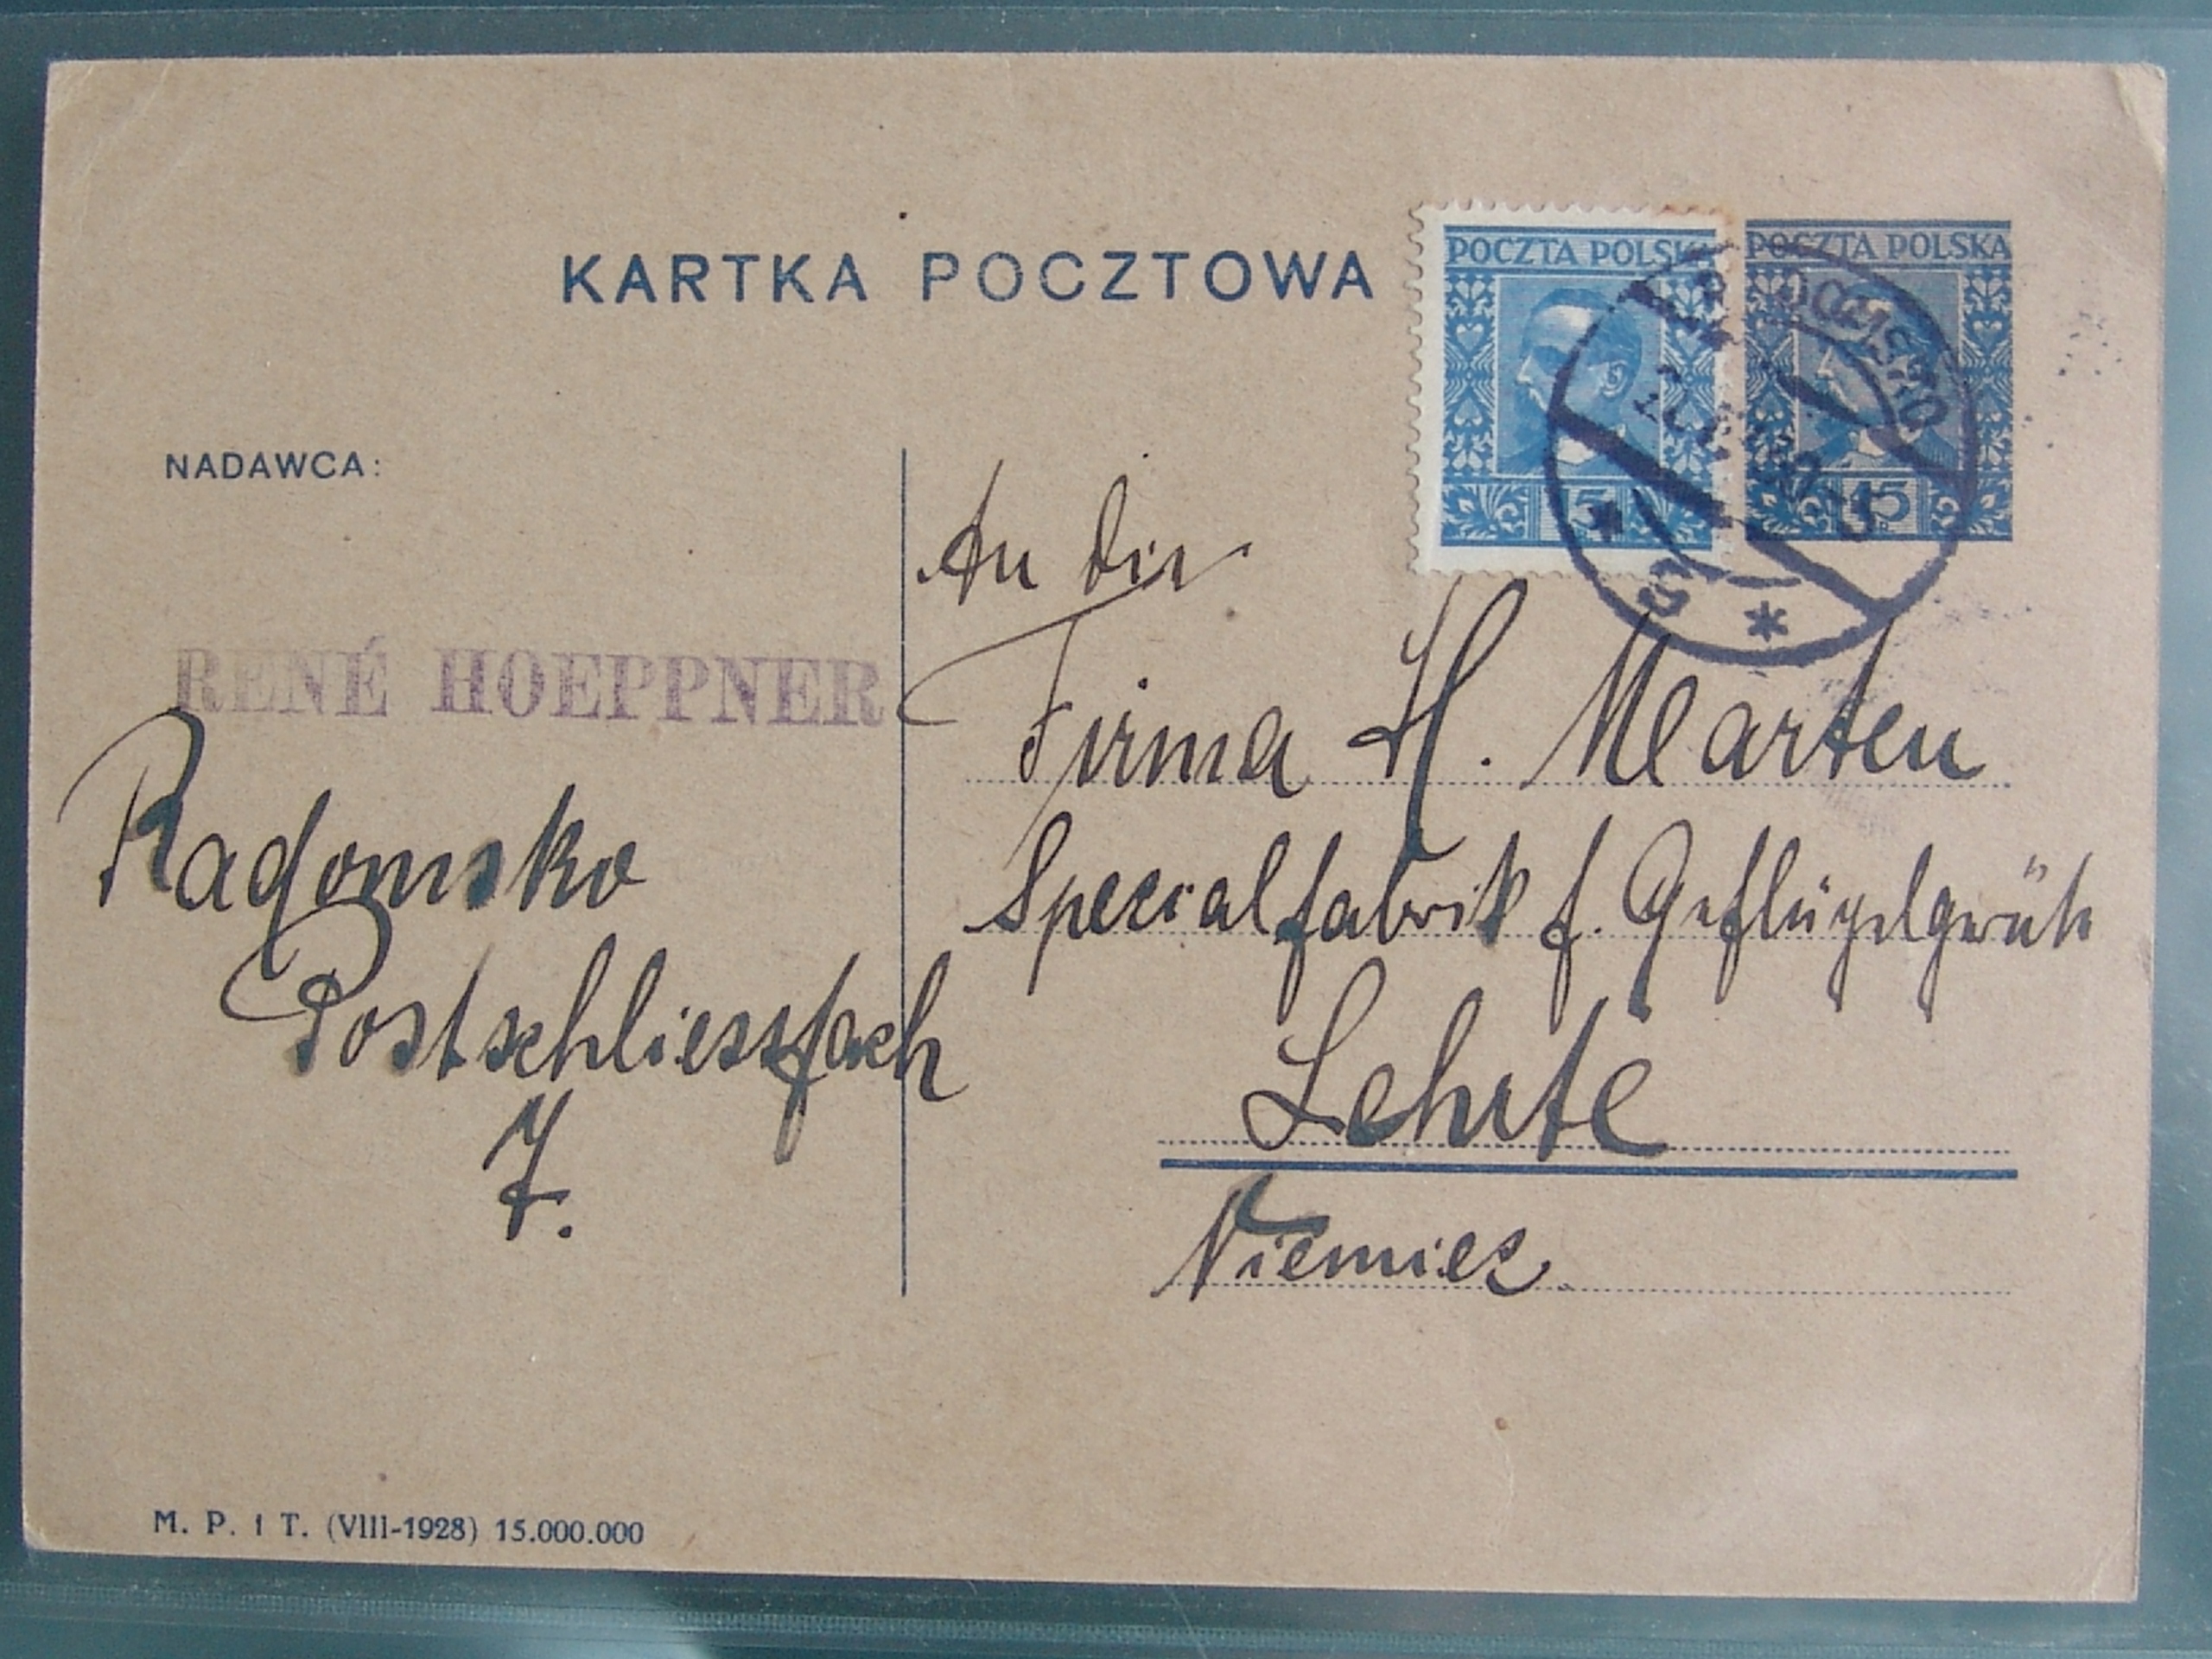 KARTKA POCZTOWA
POCZTA POLSKA
15
POCZTA POLSKA
15
RADOMSKO
NADAWCA:
RENÉ HOEPPNER
Radomsko
Postschliessfach
7.
An die
Firma H. Marten
Specialfabrik f. Geflügelgeräte
Lehrte
Niemiec
M. P. i T. (VIII-1928) 15.000.000